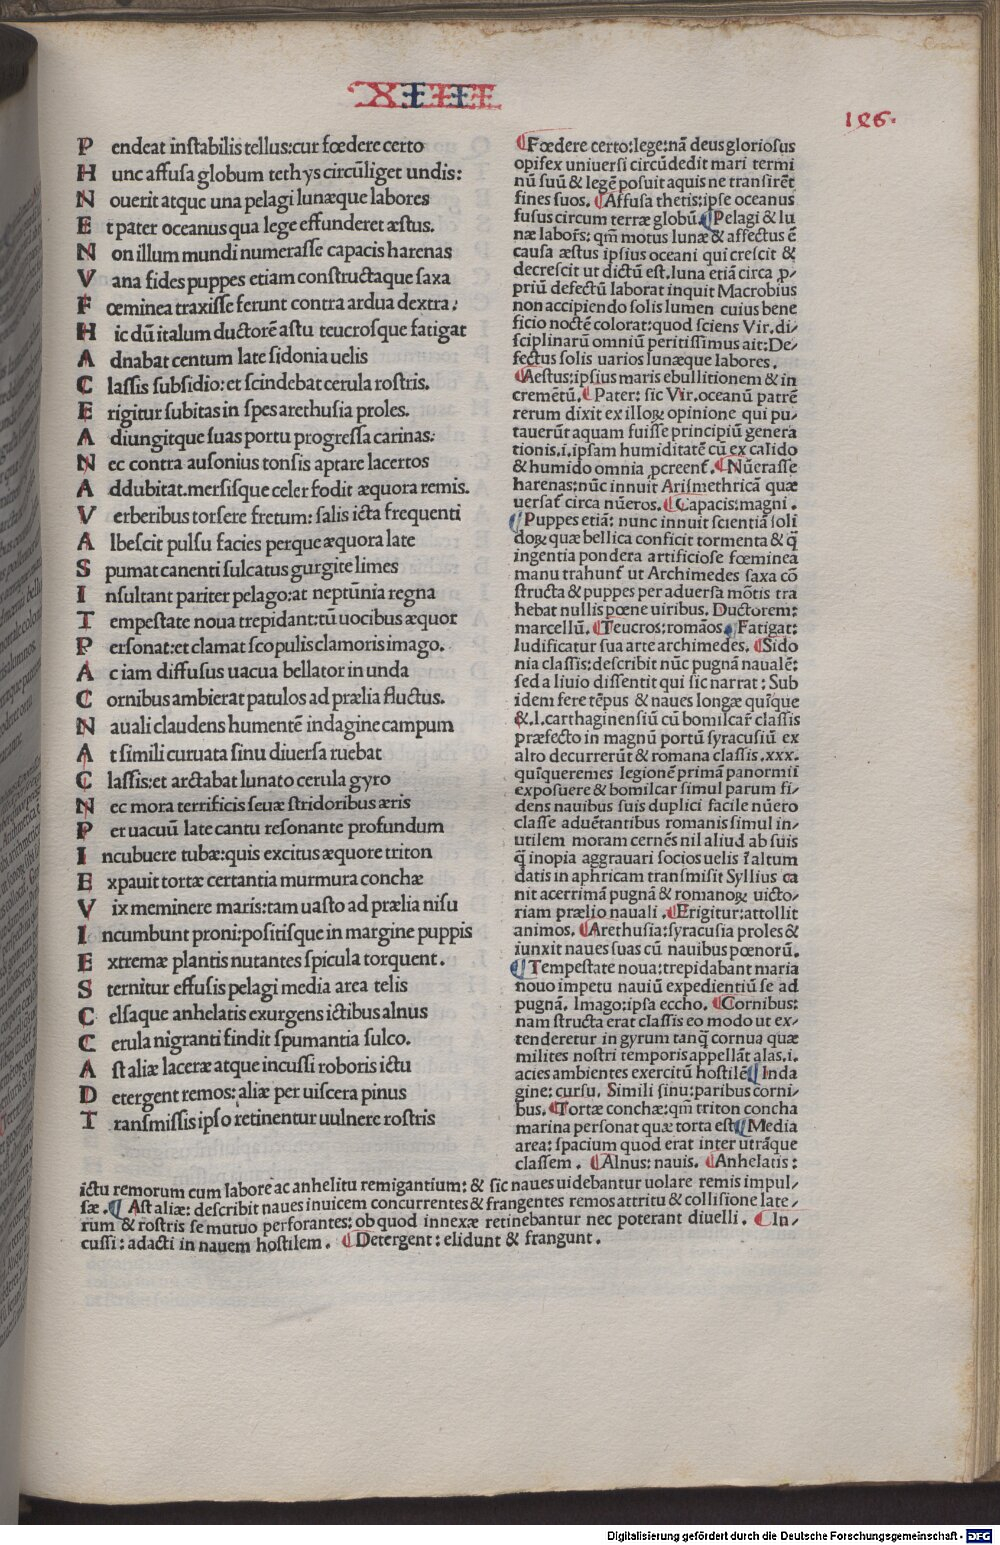 XIIII
196.
P endeat instabilis tellus: cur fœdere certo
H unc affusa globum tethys circũliget undis:
N ouerit atque una pelagi lunæque labores
E t pater oceanus qua lege effunderet æstus.
N on illum mundi numerasse capacis harenas
V ana fides puppes etiam constructaque saxa
F œminea traxisse ferunt contra ardua dextra:
H ic dũ italum ductorẽ astu teucrosque fatigat
A dnabat centum late sidonia uelis
C lassis subsidio: et scindebat cerula rostris.
E rigitur subitas in spes arethusia proles.
A diungitque suas portu progressa carinas:
N ec contra ausonius tonsis aptare lacertos
A ddubitat. mersisque celer fodit æquora remis.
V erberibus torsere fretum: salis icta frequenti
A lbescit pulsu facies perque æquora late
S pumat canenti sulcatus gurgite limes
I nsultant pariter pelago: at neptũnia regna
T empestate noua trepidant: tũ uocibus æquor
P ersonat: et clamat scopulis clamoris imago.
A c iam diffusus uacua bellator in unda
C ornibus ambierat patulos ad prælia fluctus.
N auali claudens humentẽ indagine campum
A t simili curuata sinu diuersa ruebat
C lassis: et arctabat lunato cerula gyro
N ec mora terrificis seuæ stridoribus æris
P er uacuũ late cantu resonante profundum
I ncubuere tubæ: quis excitus æquore triton
E xpauit tortæ certantia murmura conchæ
V ix meminere maris: tam uasto ad prælia nisu
I ncumbunt proni: positisque in margine puppis
E xtremæ plantis nutantes spicula torquent.
S ternitur effusis pelagi media area telis
C elsaque anhelatis exurgens ictibus alnus
C erula nigranti findit spumantia sulco.
A st aliæ laceræ atque incussi roboris ictu
D etergent remos: aliæ per uiscera pinus
T ransmissis ipso retinentur uulnere rostris
¶Fœdere certo: lege: nã deus gloriosus
opifex uniuersi circũdedit mari termi
nũ suũ & legẽ posuit aquis ne transirẽt
fines suos. ¶Affusa thetis: ipse oceanus
fusus circum terræ globũ. ¶Pelagi & lu
næ labor̃s: qm̃ motus lunæ & affectus ẽ
causa æstus ipsius oceani qui crescit &
decrescit ut dictũ est. luna etiã circa ꝓ⸗
priũ defectũ laborat inquit Macrobius
non accipiendo solis lumen cuius bene
ficio noctẽ colorat: quod sciens Vir. di⸗
sciplinarũ omniũ peritissimus ait: De⸗
fectus solis uarios lunæque labores.
¶Aestus: ipsius maris ebullitionem & in
cremẽtũ. ¶Pater: sic Vir. oceanũ patrẽ
rerum dixit ex illoꝝ opinione qui pu⸗
tauerũt aquam fuisse principiũ genera
tionis. i. ipsam humiditatẽ cũ ex calido
& humido omnia ꝓcreent̃. ¶Nũerasse
harenas: nũc innuit Arismethricã quæ
uersat̃ circa nũeros. ¶Capacis: magni.
¶Puppes etiã: nunc innuit scientiã soli
doꝝ quæ bellica conficit tormenta & q̃
ingentia pondera artificiose fœminea
manu trahunt̃ ut Archimedes saxa cõ
structa & puppes per aduersa mõtis tra
hebat nullis pœne uiribus. Ductorem:
marcellũ. ¶Teucros: romãos. ¶Fatigat:
ludificatur sua arte archimedes. ¶Sido
nia classis: describit nũc pugnã naualẽ:
sed a liuio dissentit qui sic narrat: Sub
idem fere tẽpus & naues longæ quĩque
&. l. carthaginensiũ cũ bomilcar̃ classis
præfecto in magnũ portũ syracusiũ ex
alto decurrerũt & romana classis. xxx.
quĩqueremes legionẽ primã panormii
exposuere & bomilcar simul parum fi⸗
dens nauibus suis duplici facile nũero
classe aduẽtantibus romanis simul in⸗
utilem moram cernẽs nil aliud ab suis
q̃ inopia aggrauari socios uelis ĩ altum
datis in aphricam transmisit Syllius ca
nit acerrimã pugnã & romanoꝝ uicto⸗
riam prælio nauali. ¶Erigitur: attollit
animos. ¶Arethusia: syracusia proles &
iunxit naues suas cũ nauibus pœnorũ.
¶Tempestate noua: trepidabant maria
nouo impetu nauiũ expedientiũ se ad
pugnã. Imago: ipsa eccho. ¶Cornibus:
nam structa erat classis eo modo ut ex⸗
tenderetur in gyrum tanq̃ cornua quæ
milites nostri temporis appellãt alas. i.
acies ambientes exercitũ hostilẽ ¶Inda
gine: cursu. Simili sinu: paribus corni⸗
bus. ¶Tortæ conchæ: qm̃ triton concha
marina personat quæ torta est ¶Media
area: spacium quod erat inter utrãque
classem. ¶Alnus: nauis. ¶Anhelatis:
ictu remorum cum labore ac anhelitu remigantium: & sic naues uidebantur uolare remis impul⸗
sæ. ¶ Ast aliæ: describit naues inuicem concurrentes & frangentes remos attritu & collisione late⸗
rum & rostris se mutuo perforantes: ob quod innexæ retinebantur nec poterant diuelli. ¶In⸗
cussi: adacti in nauem hostilem. ¶Detergent: elidunt & frangunt.
Digitalisierung gefördert durch die Deutsche Forschungsgemeinschaft - DFG